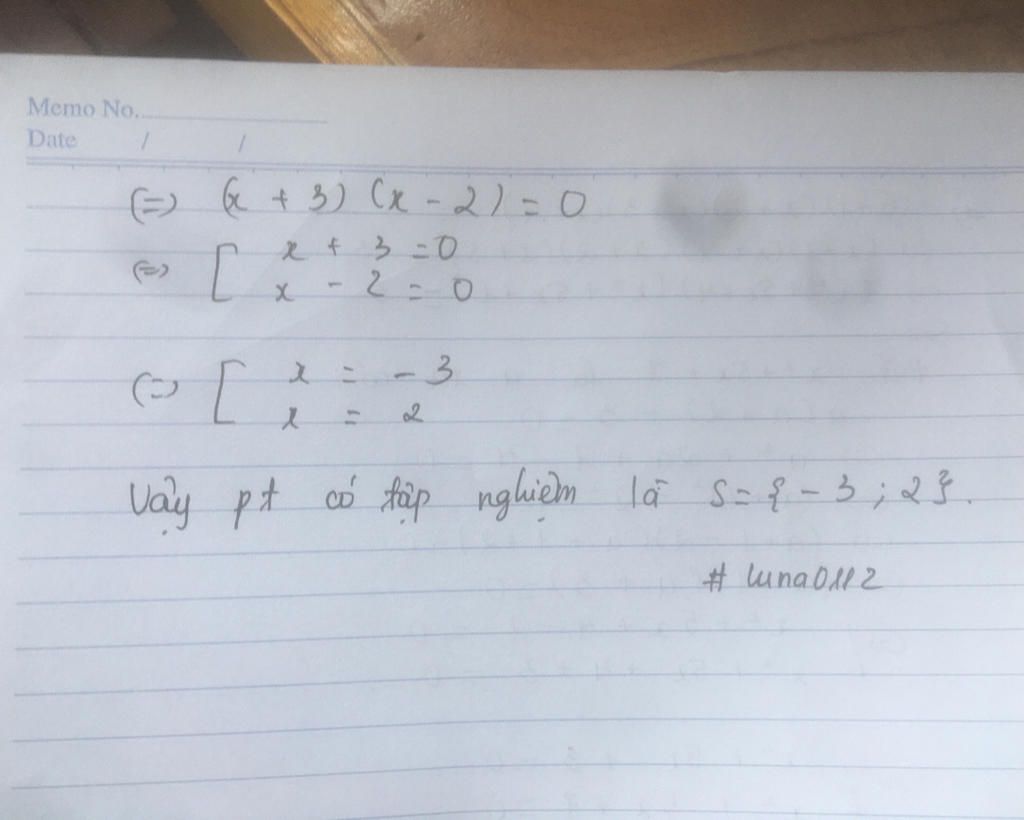 Memo No.
Date / /
(=) (x + 3) (x - 2) = 0
(=) [ x + 3 = 0
x - 2 = 0
(=) [ x = - 3
x = 2
Vậy pt có tập nghiệm là S = { - 3 ; 2 }.
# luna0112